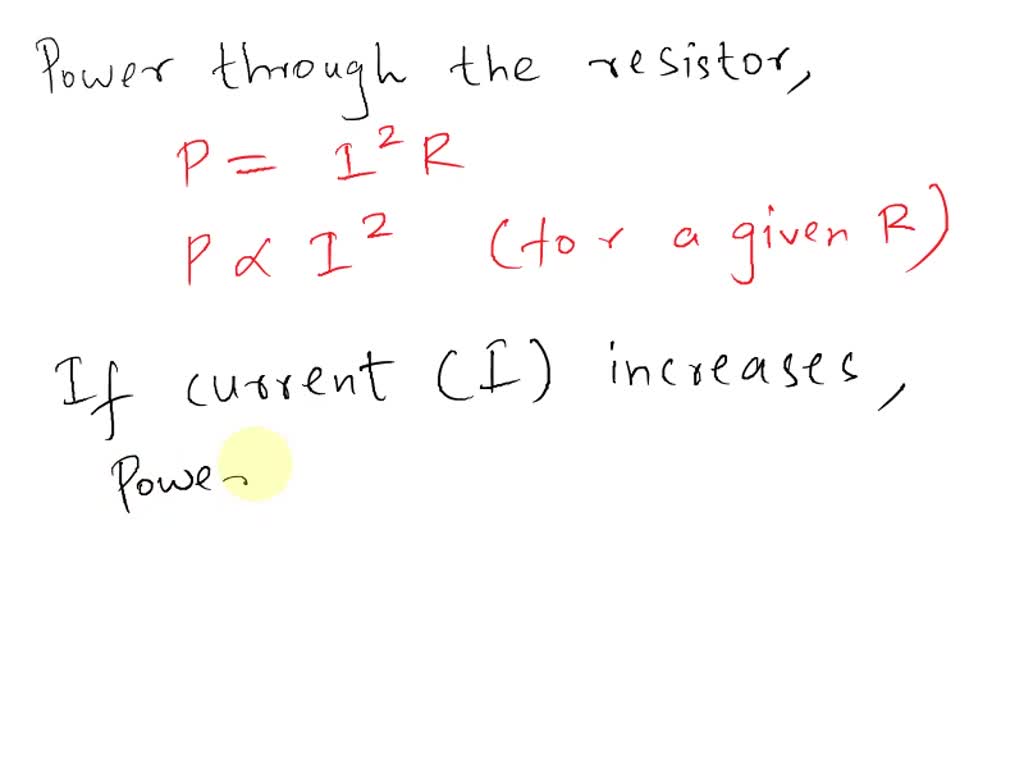 Power through the resistor,
P = I² R
P ∝ I² (for a given R)
If current (I) increases,
Powe